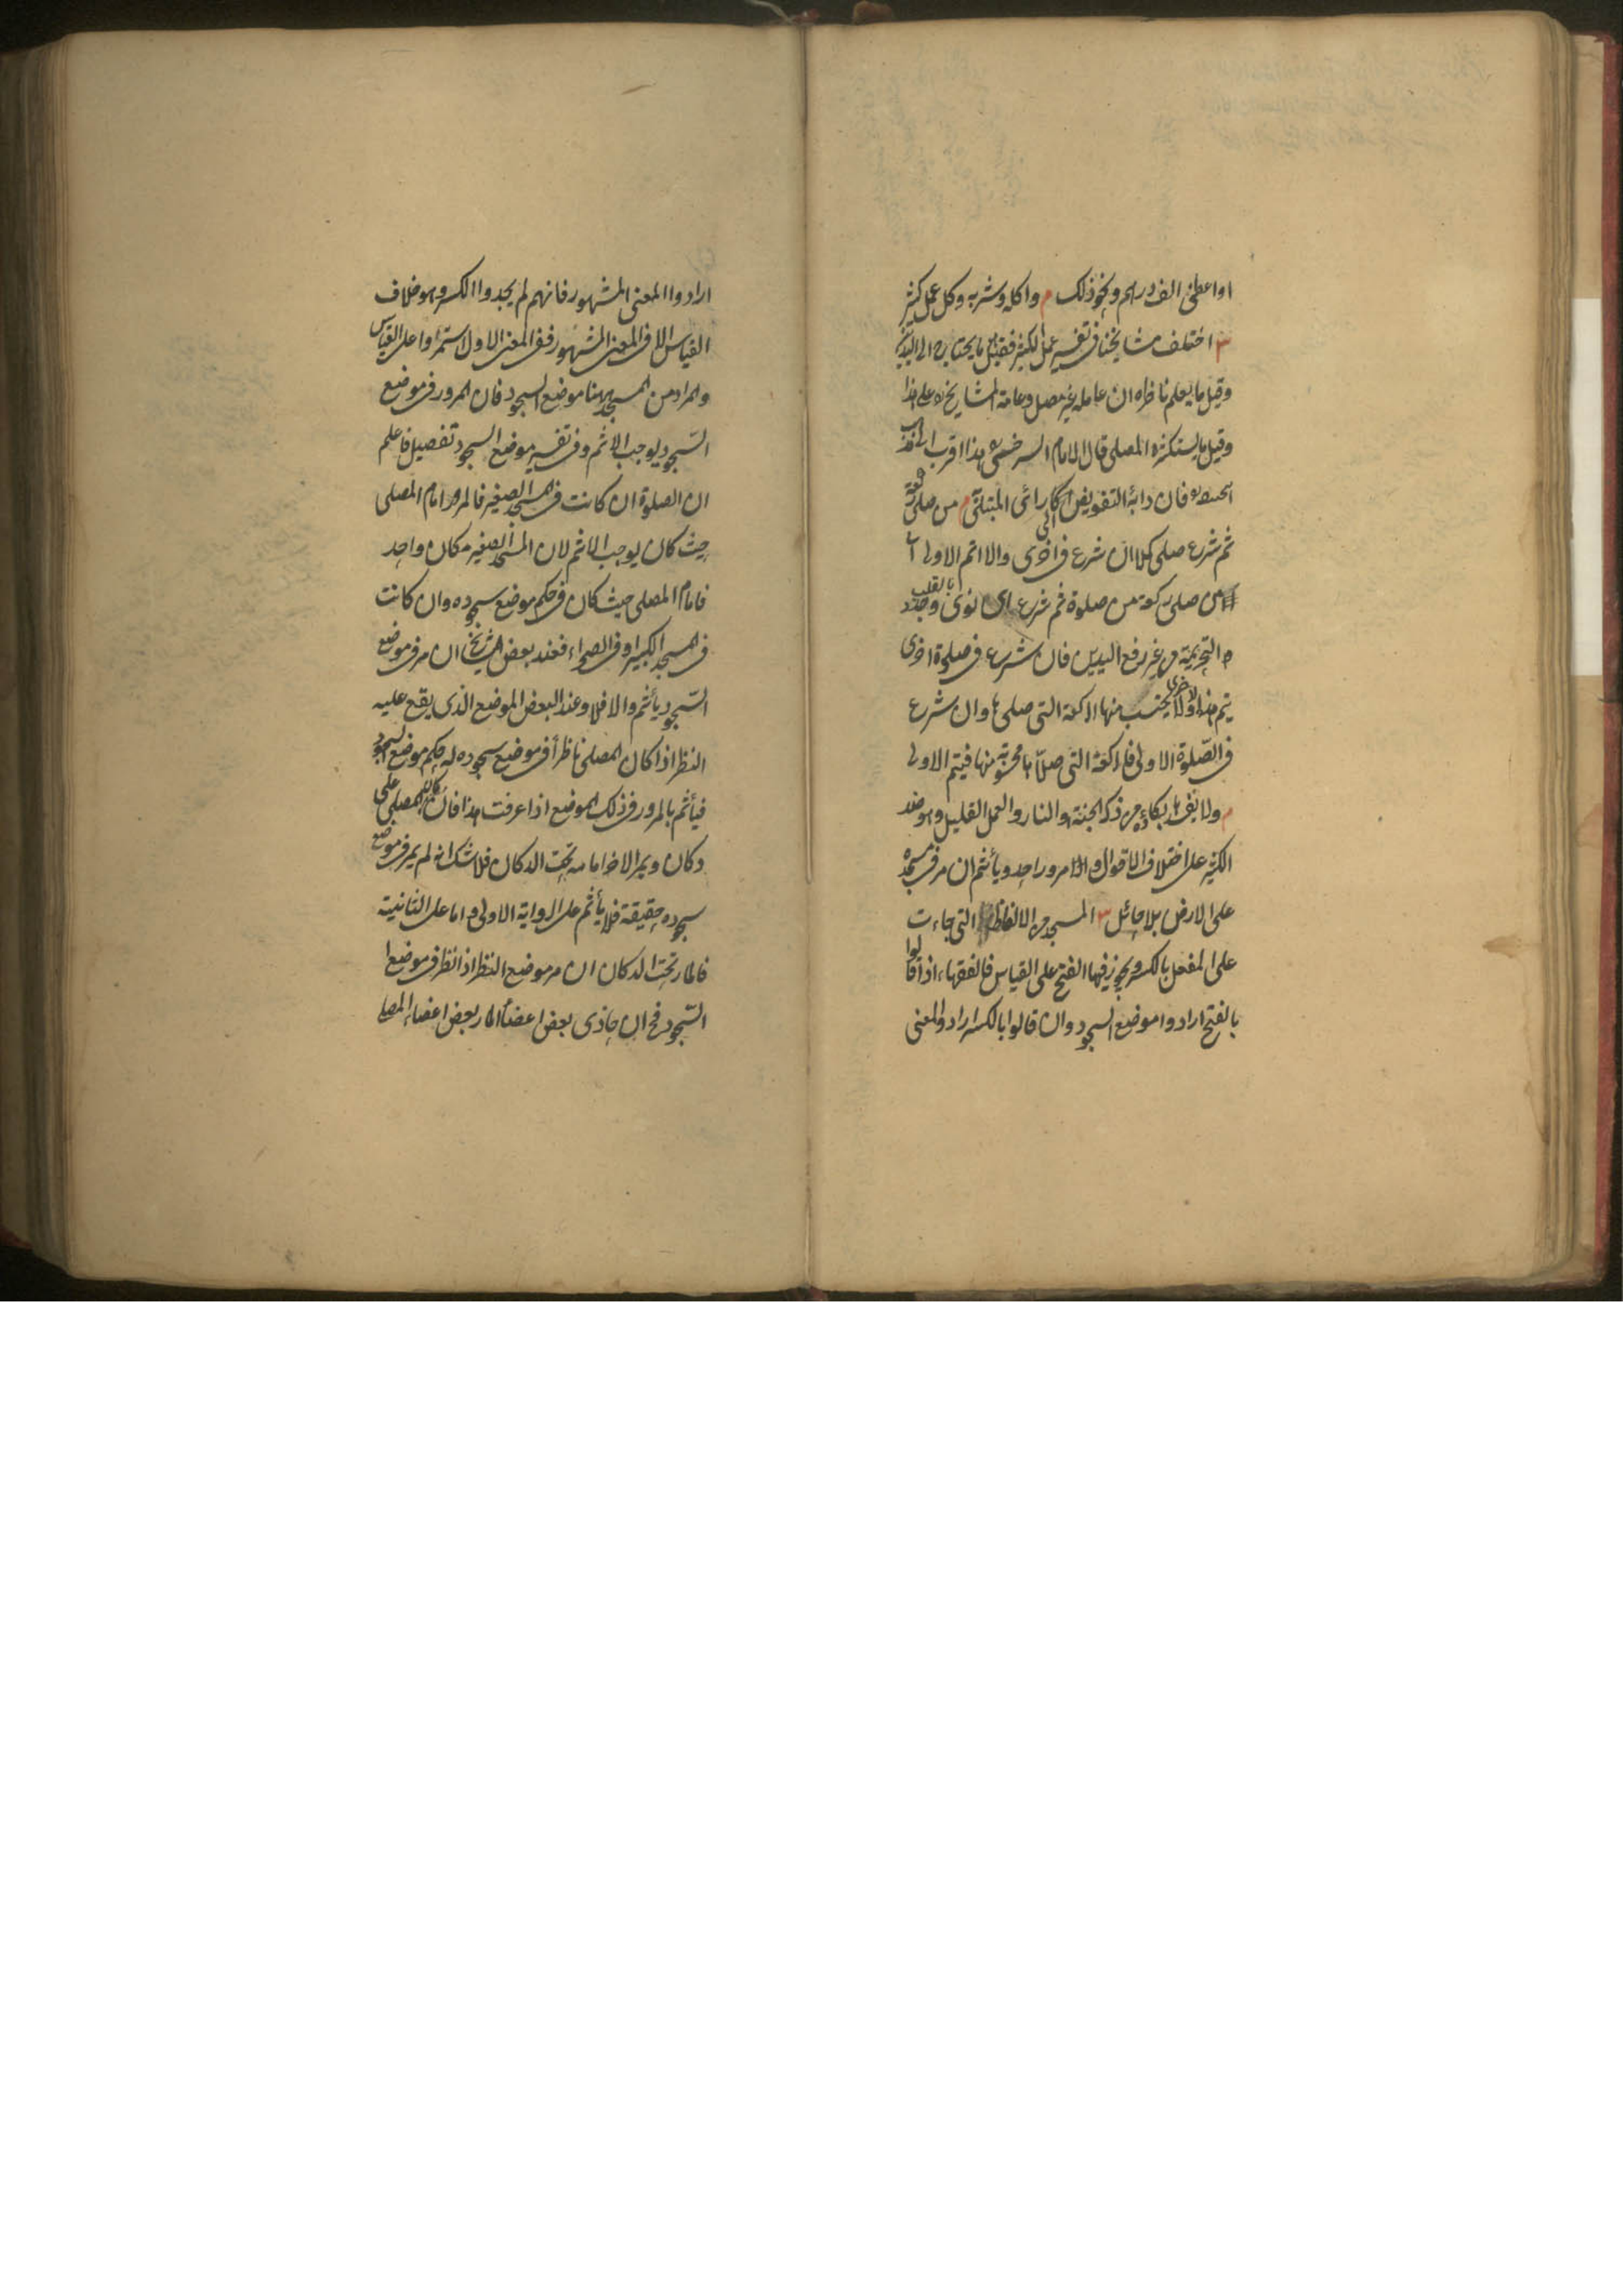 او اعطنى الف درهم ونحو ذلك م واكله وشربه وكل عمل كثير
ش اختلف مشايخنا فى تفسير عمل الكثير فقيل ما يحتاج الى اليدين
وقيل ما يعلم ناظره ان عامله غير مصل وعامة المشايخ على هذا
وقيل ما يستكثره المصلى قال الامام السرخسى هذا اقرب الى مذهب
ابى حنيفة فان دابه التفويض الى راى المبتلى م من صلى ركعة
ثم شرع صلى كملا ان شرع فى اخرى والا اتم الاولى
من صلى ركعة من صلوة ثم شرع اى نوى بالقلب وجدد
التحريمة من غير رفع اليدين فان شرع فى صلوة اخرى
يتم هذه الاخرى ولا يحتسب منها الركعة التى صلى ها وان شرع
فى الصّلوة الاولى فالركعة التى صلّاها محسوبة منها فيتم الاولى
م ولا يفسدها بكاؤه من ذكر الجنة والنار والعمل القليل وهو ضد
الكثير على اختلاف الاقوال ومرور احد ويأثم ان مر فى مسجده
على الارض بلا حائل ش المسجد من الالفاظ التى جاءت
على المفعل بالكسر ويجوز فيها الفتح على القياس فالفقهاء اذا قالوا
بالفتح ارادوا موضع السجود وان قالوا بالكسر ارادوا المعنى
ارادوا المعنى المشهور فانهم لم يجدوا الكسر وهو خلاف
القياس الا فى المعنى المشهور ففى المعنى الاول استمروا على القياس
والمراد من المسجد ههنا موضع السجود فان المرور فى موضع
السّجود يوجب الاثم وفى تفسير موضع السجود تفصيل فاعلم
ان الصلوة ان كانت فى المسجد الصغير فالمرور امام المصلى
حيث كان يوجب الاثم لان المسجد الصغير مكان واحد
فامام المصلى حيث كان فى حكم موضع سجوده وان كانت
فى المسجد الكبير او فى الصحراء فعند بعض المشايخ ان مر فى موضع
السّجود يأثم والا فلا وعند البعض الموضع الذى يقع عليه
النظر اذا كان المصلى ناظرا فى موضع سجوده له حكم موضع السجود
فيأثم بالمرور فى ذلك الموضع اذا عرفت هذا فان كان المصلى على
دكان ويمر الاخر امامه تحت الدكان فلا شك انه لم يمر فى موضع
سجوده حقيقة فلا يأثم على الرواية الاولى واما على الثانية
فالمار تحت الدكان ان مر موضع النظر اذا نظر فى موضع
السّجود فح ان حاذى بعض اعضاء المار بعض اعضاء المصلى